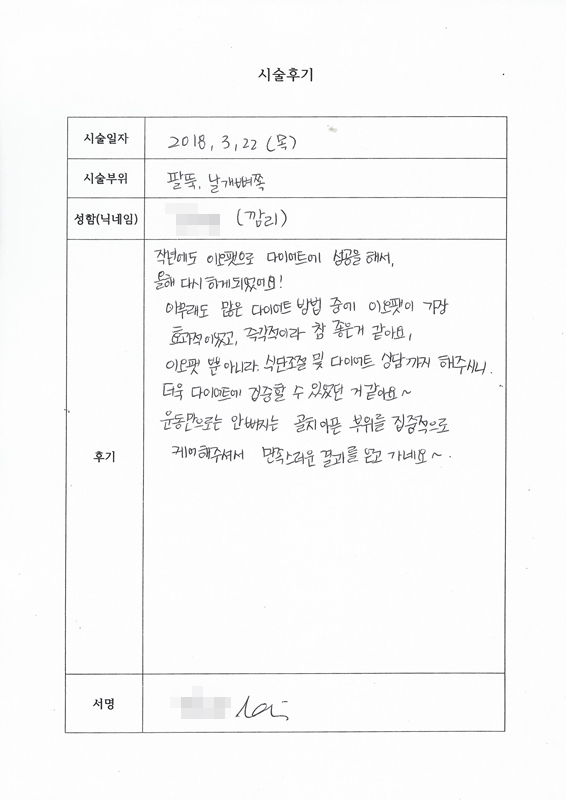 시술후기
시술일자 2018, 3, 22 (목)
시술부위 팔뚝, 날개뼈쪽
성함(닉네임) (깜리)
후기
작년에도 이오팻으로 다이어트에 성공을 해서,
올해 다시 하게되었어요!
아무래도 많은 다이어트 방법 중에 이오팻이 가장
효과적이었고, 즉각적이라 참 좋은거 같아요,
이오팻 뿐 아니라 식단조절 및 다이어트 상담까지 해주시니.
더욱 다이어트에 집중할 수 있었던 거 같아요~
운동만으로는 안빠지는 골치아픈 부위를 집중적으로
케어해주셔서 만족스러운 결과를 얻고 가네요~.
서명